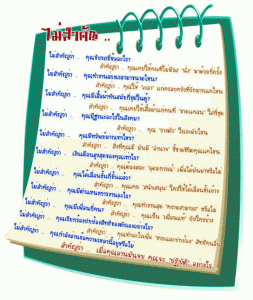 ไม่สำคัญ ..
ไม่สำคัญว่า .. คุณขับรถยี่ห้ออะไร?
สำคัญว่า .. คุณเคยให้คนที่ไม่มีรถ "นั่ง" มาด้วยกี่ครั้ง
ไม่สำคัญว่า .. คุณทำงานล่วงเวลามากมายไหน?
สำคัญว่า .. คุณให้ "เวลา" แก่ครอบครัวที่รักมากแค่ไหน
ไม่สำคัญว่า .. คุณมีเสื้อผ้าทันสมัยกี่ชุดในตู้?
สำคัญว่า .. คุณเคยให้เสื้อผ้าแก่คนที่ "ขาดแคลน" กี่ครั้ง
ไม่สำคัญว่า .. คุณมีฐานะอะไรในสังคม?
สำคัญว่า .. คุณ "วางตัว" ในระดับไหน
ไม่สำคัญว่า .. คุณมีทรัพย์มากเท่าไร?
สำคัญว่า .. สิ่งที่คุณมี มันมี "อำนาจ" ชี้นำชีวิตคุณแค่ไหน
ไม่สำคัญว่า .. เงินเดือนสูงสุดของคุณเท่าไร?
สำคัญว่า .. คุณต้องลด "คุณธรรม" เพื่อให้ได้มันมาหรือไม่
ไม่สำคัญว่า .. คุณได้เลื่อนขั้นกี่ขั้นแล้ว?
สำคัญว่า .. คุณเคย "สนับสนุน" ใครให้ได้เลื่อนขั้นบ้าง
ไม่สำคัญว่า .. คุณมีตำแหน่งการงานอะไร?
สำคัญว่า .. คุณทำงานสุด "ความสามารถ" หรือไม่
ไม่สำคัญว่า .. คุณมีเพื่อนกี่คน?
สำคัญว่า .. คุณเป็น "เพื่อนแท้" กับใครบ้าง
ไม่สำคัญว่า ..
สำคัญว่า ..
ไม่สำคัญว่า ..
สำคัญว่า .. เมื่อคุณอ่านมันจบ คุณจะ "ปฏิบัติ" อย่างไร